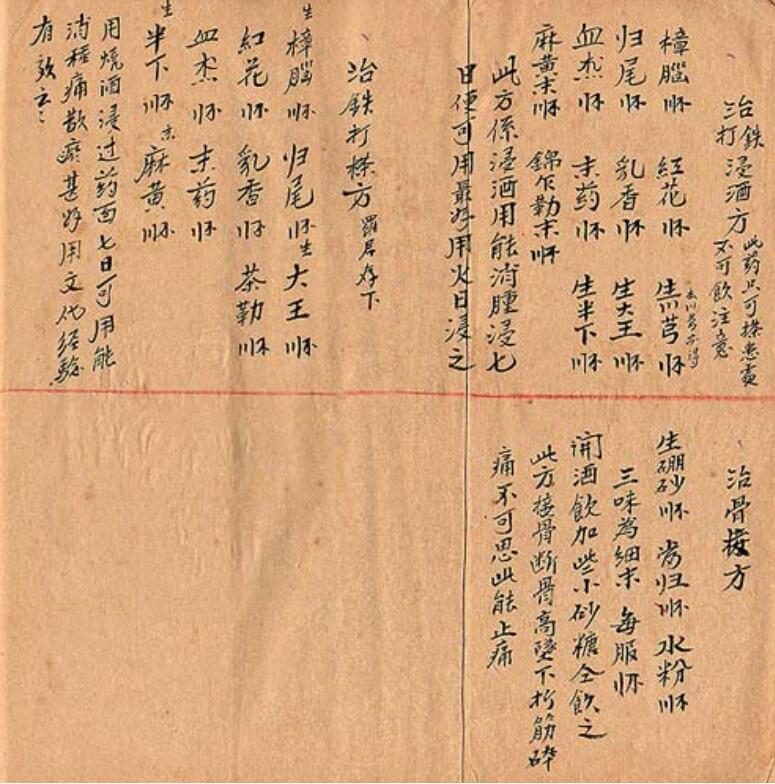 治鉄打浸酒方 此药只可搽患處
不可飲注意
樟腦 紅花 生川芎
归尾 乳香 生大王
血杰 末药 生半下
麻黄末 錦乍勒末
此方係浸酒用能消腫浸七
日便可用最好用火日浸之
治鉄打搽方 羅君存下
生樟腦 归尾 生大王
紅花 乳香 茶勒
血杰 末药
生半下 末麻黄
用燒酒浸过药面七日可用能
消種痛散瘀甚好用文代经驗
有效云云
治骨接方
生硼砂 当归 水粉
三味為細末 每服
開酒飲加些小砂糖仝飲之
此方接骨断骨高墜下折筋碎
痛不可思此能止痛